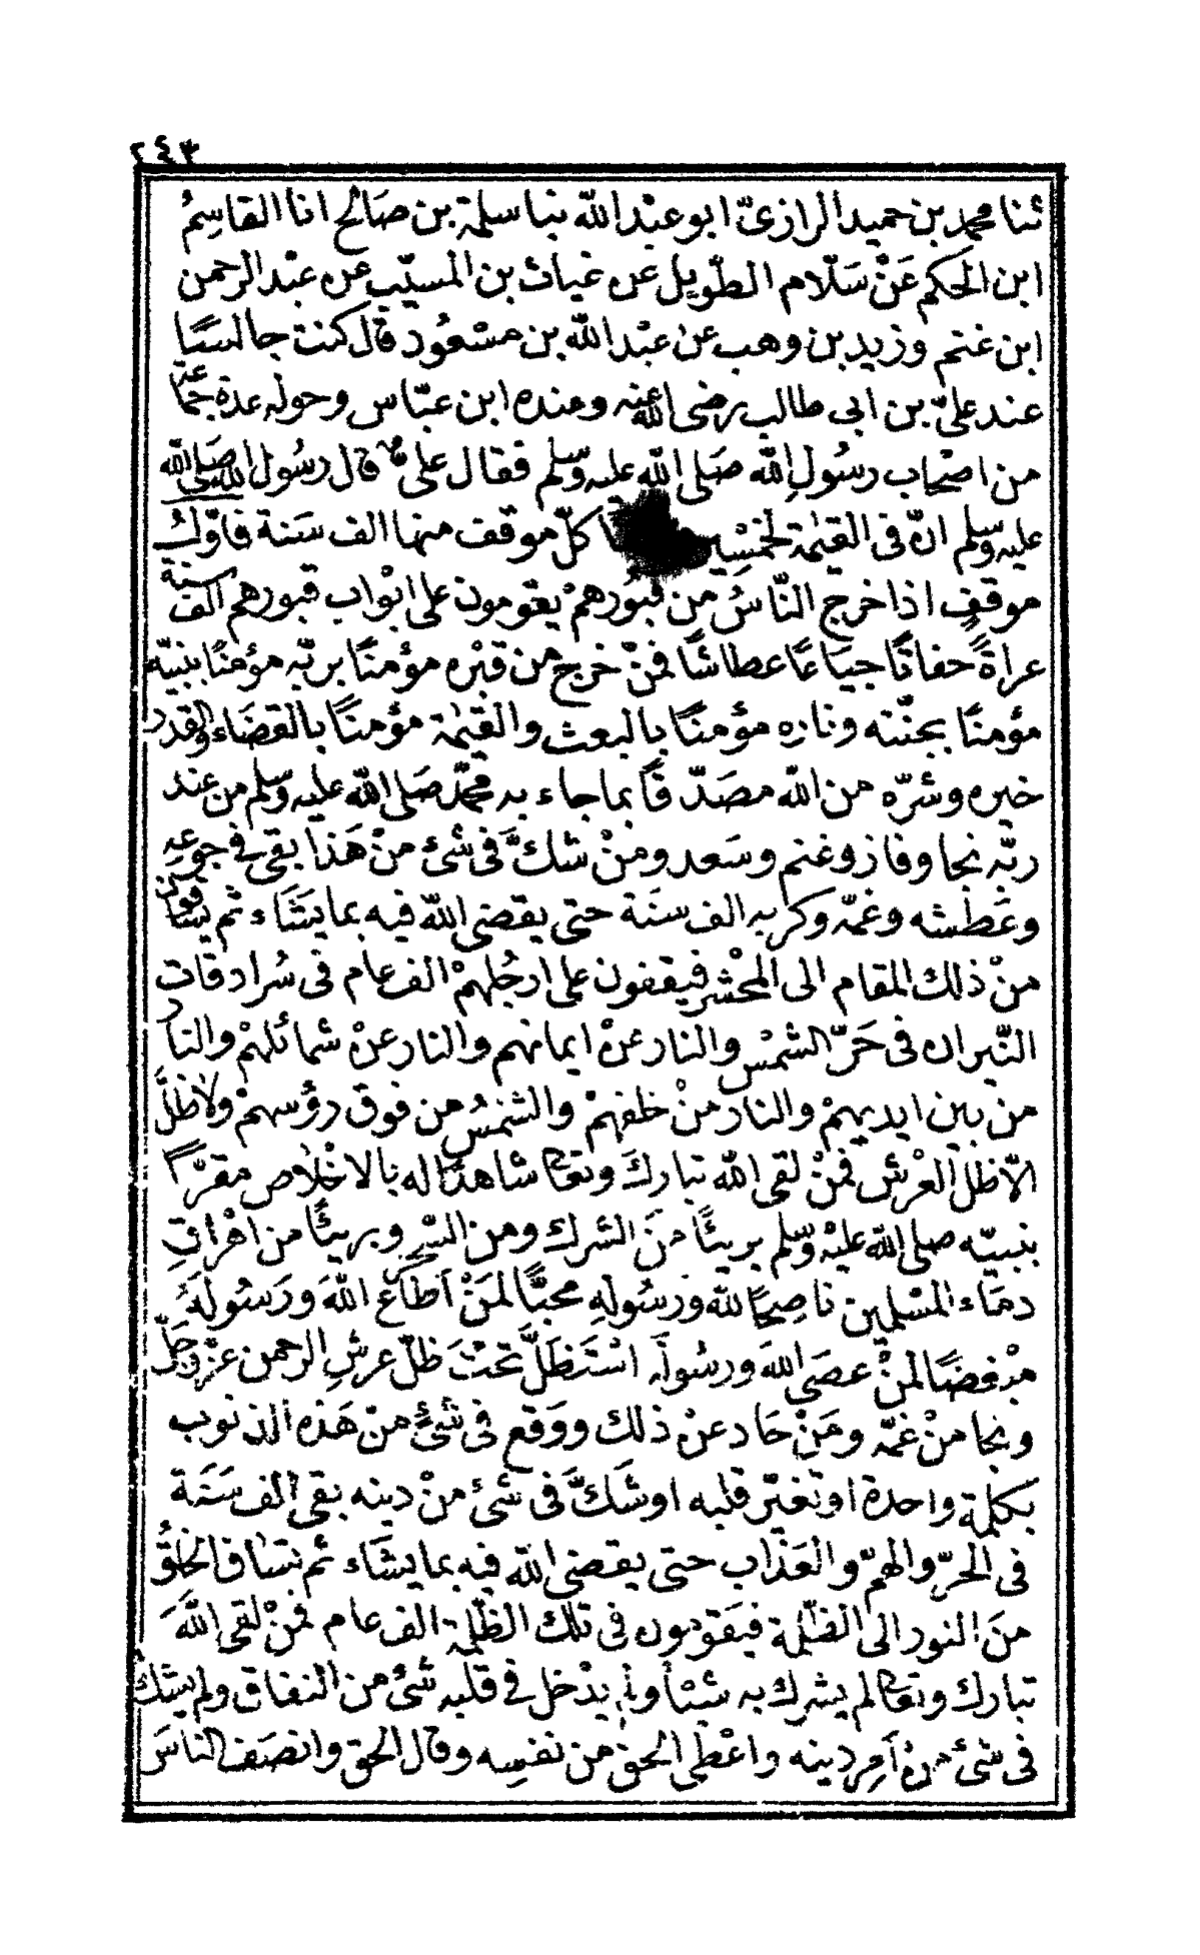 ٢٤٣
ثنا محمد بن حميد الرازىّ ابو عبْد الله ثنا سلمة بن صَالح انا القاسِمُ
ابن الحكم عَنْ سَلّام الطّويل عن غياث بن المسيّب عن عبْد الرحمن
ابن غنم وزيد بن وهب عن عبْد الله بن مسْعُود قال كنت جالسًا
عند علىّ بن ابى طالب رضى الله عنه وعنده ابن عبّاس وحوله عدة جماعة
من اصْحاب رسُولِ الله صَلى الله عليه وسلم فقال على قال رسُول الله صَلى الله
عليه وسلم انّ فى القيٰمة لخمْسِين كلّ موقف منها الف سَنة فاوّلُ
موقفٍ اذا خرج النّاسُ من قبُورهمْ يقومون على ابْواب قبورهم الف سنة
عراةً حفاتًا جيَاعًا عطاشًا فمنْ خرج من قبْره مؤمنًا بربّه مؤمنًا بنبيّه
مؤمنًا بجنّته وناره مؤمنًا بالبعث والقيٰمة مؤمنًا بالقضَاء والقدر
خيره وشرّه من الله مصَدّقًا بما جاء به محمّد صَلى الله عليه وسلم من عند
ربّه نجا وفاز وغنم وسَعد ومنْ شكَّ فى شئ منْ هَذا بقى فى جوعه
وعَطشه وغمّه وكربه الف سنَة حتى يقضى الله فيه بما يشَاء ثم يسَاقون
منْ ذلك المقام الى المحْشر فيقفون على ارجُلهمْ الف عام فى سُرادقات
النّيران فى حَرّ الشمْس والنار عنْ ايمانهم والنار عنْ شمائلهمْ والنار
من بين ايديهمْ والنار منْ خلفهمْ والشمْسُ من فوق رؤسهمْ ولا ظلَّ
الّا ظلّ العرْش فمنْ لقى الله تبارك وتعالى شاهدًا له بالاخْلاص مقرًّا
بنبيّه صلى الله عليْه وسّلم بريئًا منَ الشرك ومن السّحر وبريئًا من اهْراقِ
دمَاء المسْلمين ناصِحًا لله ورسُولهِ محبًّا لمَنْ اطَاعَ اللهَ ورَسُولهَ
مبْغضًا لمنْ عصَى اللهَ ورسُولَه اسْتَظلَّ تحْتَ ظلّ عرشِ الرحمن عزّ وَجَلّ
ونجا منْ غمّه ومَنْ حَاد عنْ ذلك ووَقع فى شئٍ منْ هَذه الذنوب
بكلمة واحدة او تغيّر قلبه اوشَكَّ فى شئ منْ دينه بقى الف سَنَة
فى الحرّ والهمّ والعَذاب حتى يقضى الله فيه بما يشَاء ثم يسَاق الخلقُ
منَ النور الى الظلمة فيَقومون فى تلك الظلّمة الف عام فمنْ لقى اللهَ
تبارك وتعالى لم يشرك به شيئا ولم يدْخل فى قلبه شئ من النفاق ولم يشك
فى شئ منْ أمِر دينه واعْطى الحق من نفسِه وقال الحق وانصَف الناسَ